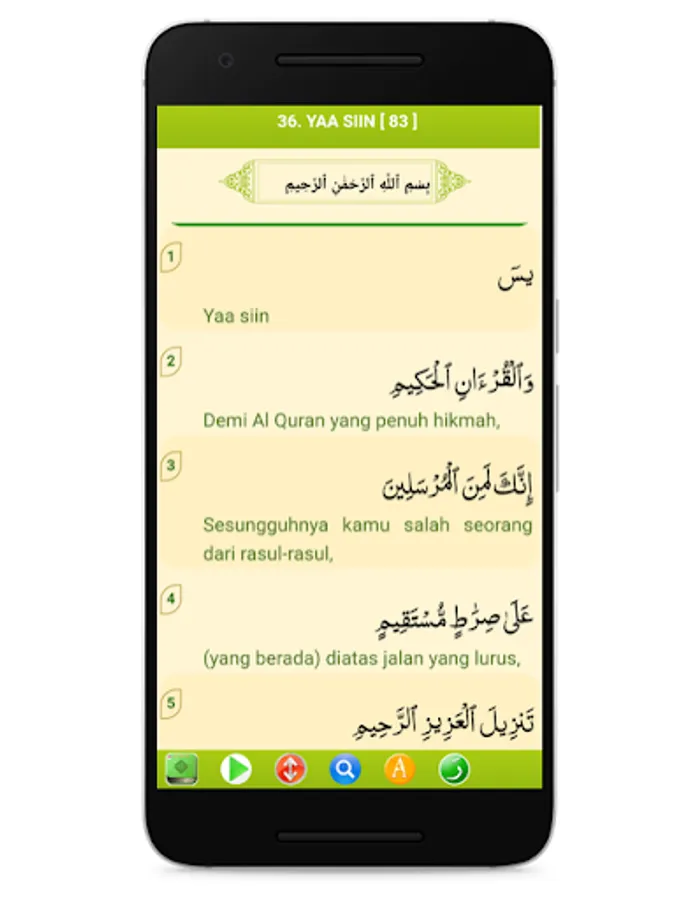 36. YAA SIIN [ 83 ]
بِسْمِ ٱللَّهِ ٱلرَّحْمَٰنِ ٱلرَّحِيمِ
1
يسٓ
Yaa siin
2
وَٱلْقُرْءَانِ ٱلْحَكِيمِ
Demi Al Quran yang penuh hikmah,
3
إِنَّكَ لَمِنَ ٱلْمُرْسَلِينَ
Sesungguhnya kamu salah seorang
dari rasul-rasul,
4
عَلَىٰ صِرَٰطٍ مُّسْتَقِيمٍ
(yang berada) diatas jalan yang lurus,
5
تَنزِيلَ ٱلْعَزِيزِ ٱلرَّحِيمِ
A